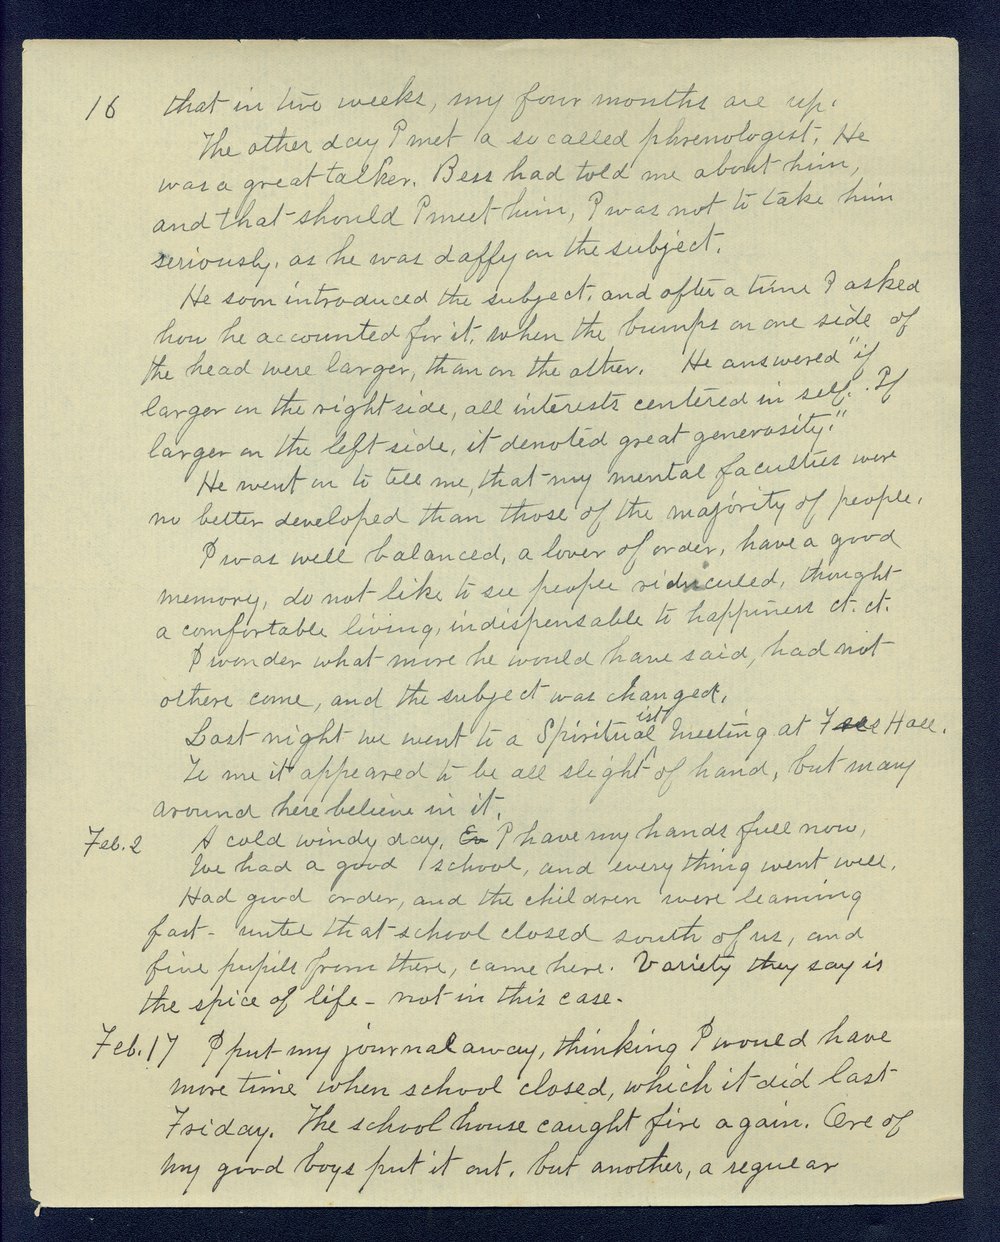 16 that in two weeks, my four months are up.
The other day I met a so called phrenologist. He
was a great talker. Bess had told me about him,
and that should I meet him, I was not to take him
seriously, as he was daffy on the subject.
He soon introduced the subject, and after a time I asked
how he accounted for it, when the bumps on one side of
the head were larger, than on the other. He answered "if
larger on the right side, all interests centered in self. If
larger on the left side, it denoted great generosity."
He went on to tell me, that my mental faculties were
no better developed than those of the majority of people.
I was well balanced, a lover of order, have a good
memory, do not like to see people ridiculed, thought
a comfortable living, indispensable to happiness ct. ct.
I wonder what more he would have said, had not
others come, and the subject was changed.
Last night we went to a Spiritualist Meeting at Hall.
To me it appeared to be all slight of hand, but many
around here believe in it.
Feb. 2 A cold windy day. En I have my hands full now,
We had a good school, and every thing went well.
Had good order, and the children were learning
fast - until that school closed south of us, and
five pupils from there, came here. Variety they say is
the spice of life - not in this case.
Feb. 17 I put my journal away, thinking I would have
more time when school closed, which it did last
Friday. The school house caught fire again. One of
my good boys put it out, but another, a regular